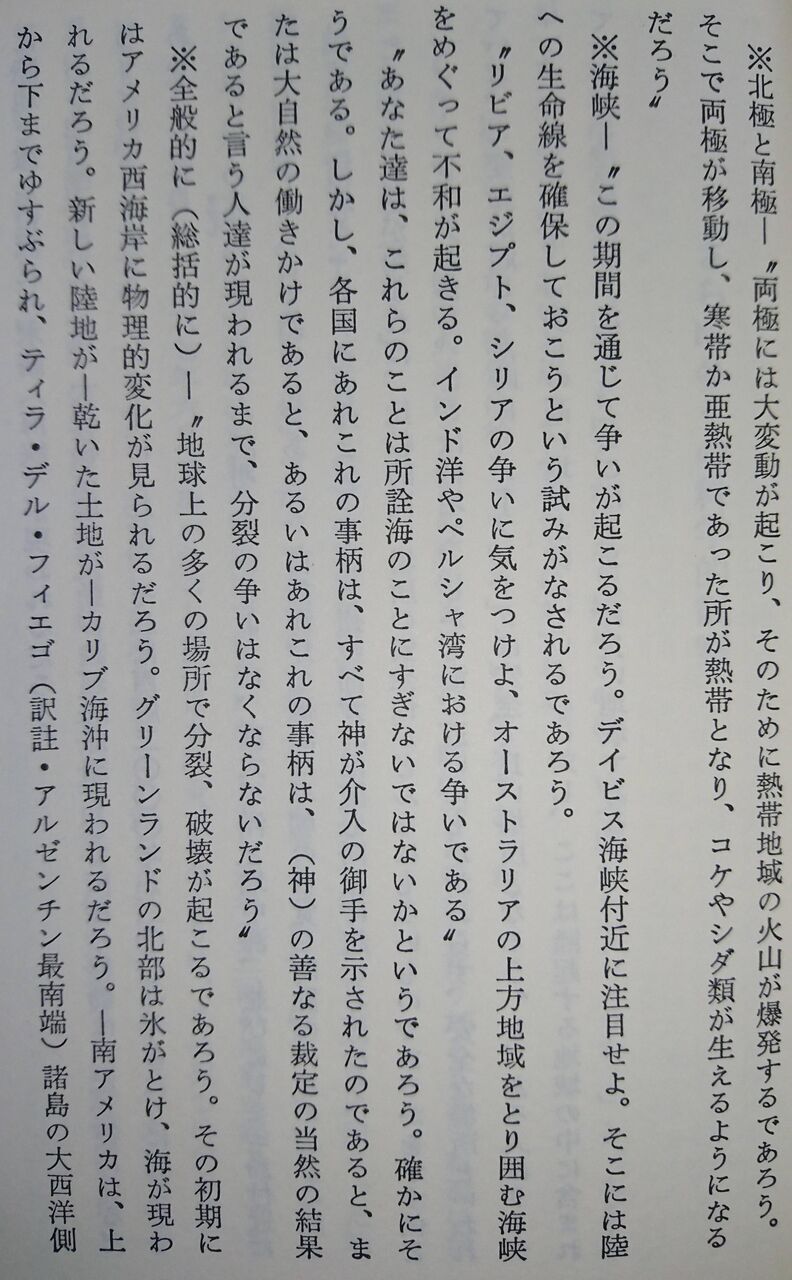 ※北極と南極―〝両極には大変動が起こり、そのために熱帯地域の火山が爆発するであろう。
そこで両極が移動し、寒帯か亜熱帯であった所が熱帯となり、コケやシダ類が生えるようになる
だろう〟
※海峡―〝この期間を通じて争いが起こるだろう。デイビス海峡付近に注目せよ。そこには陸
への生命線を確保しておこうという試みがなされるであろう。
〝リビア、エジプト、シリアの争いに気をつけよ、オーストラリアの上方地域をとり囲む海峡
をめぐって不和が起きる。インド洋やペルシャ湾における争いである〟
〝あなた達は、これらのことは所詮海のことにすぎないではないかというであろう。確かにそ
うである。しかし、各国にあれこれの事柄は、すべて神が介入の御手を示されたのであると、ま
たは大自然の働きかけであると、あるいはあれこれの事柄は、（神）の善なる裁定の当然の結果
であると言う人達が現われるまで、分裂の争いはなくならないだろう〟
※全般的に（総括的に）―〝地球上の多くの場所で分裂、破壊が起こるであろう。その初期に
はアメリカ西海岸に物理的変化が見られるだろう。グリーンランドの北部は氷がとけ、海が現わ
れるだろう。新しい陸地が―乾いた土地が―カリブ海沖に現われるだろう。―南アメリカは、上
から下までゆすぶられ、ティラ・デル・フィエゴ（訳註・アルゼンチン最南端）諸島の大西洋側